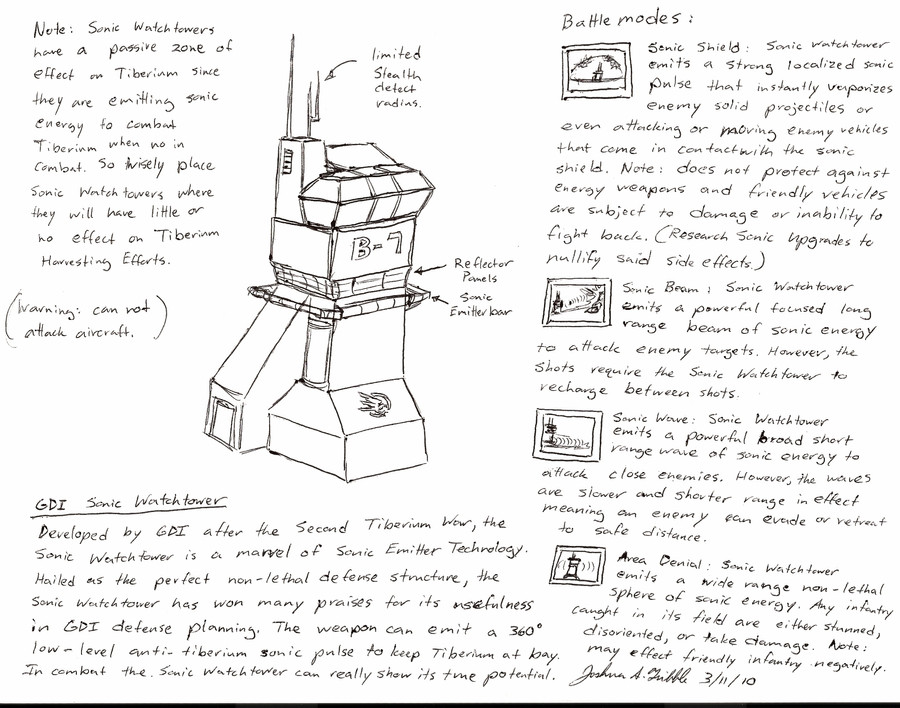 Note: Sonic Watchtowers
have a passive zone of
effect on Tiberium since
they are emitting sonic
energy to combat
Tiberium when no in
combat. So wisely place
Sonic Watchtowers where
they will have little or
no effect on Tiberium
Harvesting Efforts.
(Warning: can not
attack aircraft.)
limited
Stealth
detect
radius.
B-7
Reflector
Panels
Sonic
Emitter bar
GDI Sonic Watchtower
Developed by GDI after the Second Tiberium War, the
Sonic Watchtower is a marvel of Sonic Emitter Technology.
Hailed as the perfect non-lethal defense structure, the
Sonic Watchtower has won many praises for its usefulness
in GDI defense planning. The weapon can emit a 360°
low-level anti-tiberium sonic pulse to keep Tiberium at bay.
In combat the Sonic Watchtower can really show its true potential.
Battle modes:
Sonic Shield: Sonic Watchtower
emits a strong localized sonic
pulse that instantly vaporizes
enemy solid projectiles or
even attacking or moving enemy vehicles
that come in contact with the sonic
shield. Note: does not protect against
energy weapons and friendly vehicles
are subject to damage or inability to
fight back. (Research Sonic Upgrades to
nullify said side effects.)
Sonic Beam: Sonic Watchtower
emits a powerful focused long
range beam of sonic energy
to attack enemy targets. However, the
shots require the Sonic Watchtower to
recharge between shots.
Sonic Wave: Sonic Watchtower
emits a powerful broad short
range wave of sonic energy to
attack close enemies. However, the waves
are slower and shorter range in effect
meaning an enemy can evade or retreat
to safe distance.
Area Denial: Sonic Watchtower
emits a wide range non-lethal
sphere of sonic energy. Any infantry
caught in its field are either stunned,
disoriented, or take damage. Note:
may effect friendly infantry negatively.
Joshua A. Gribble 3/11/10